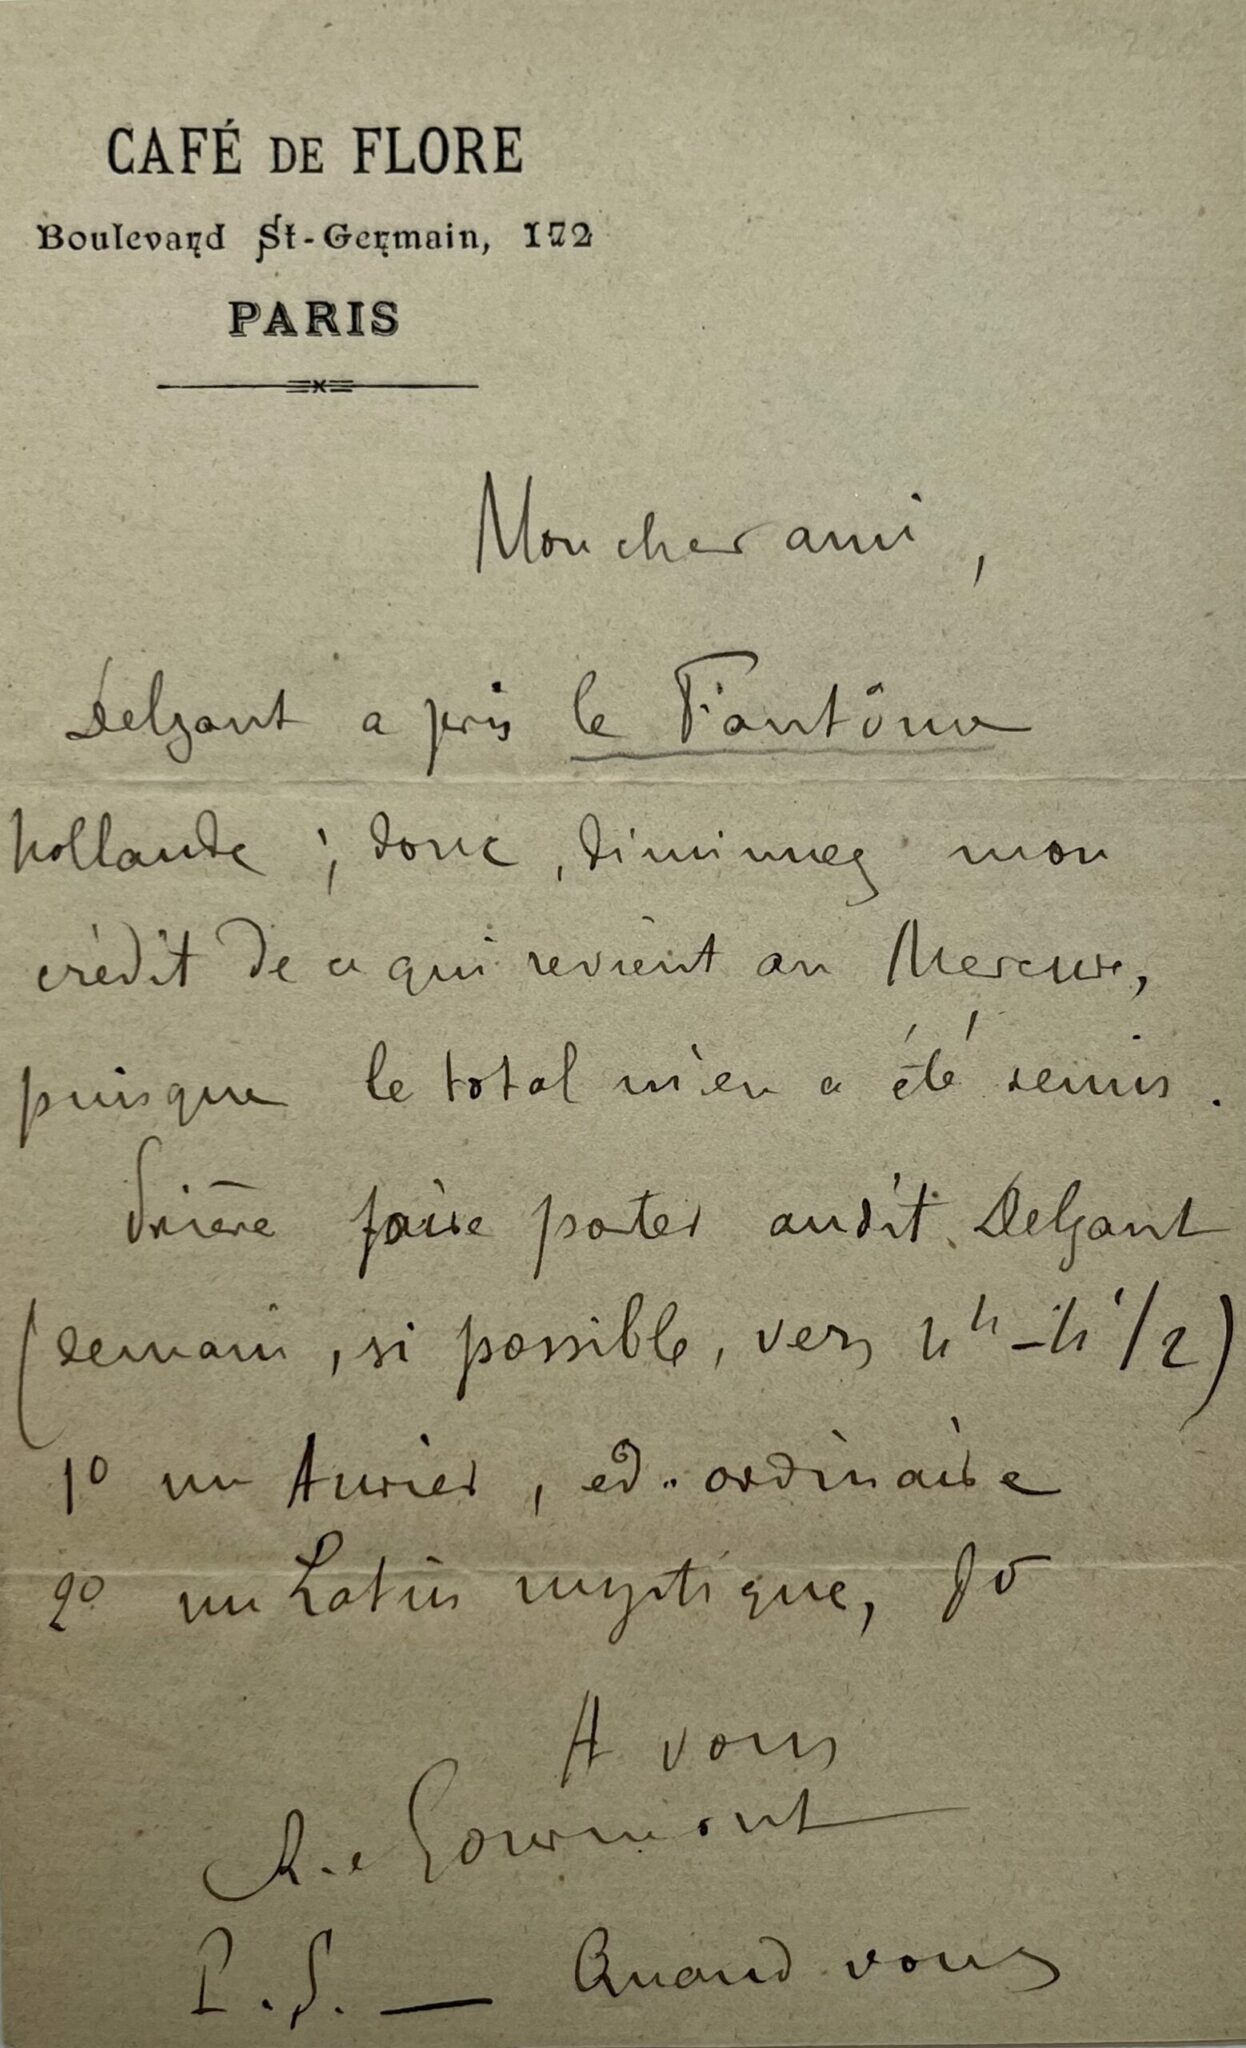 CAFÉ DE FLORE
Boulevard St-Germain, 172
PARIS
Mon cher ami,
Delzant a pris le Fantôme
hollande ; donc, diminuez mon
crédit de ce qui revient au Mercure,
puisque le total m'en a été remis.
Prière faire porter audit Delzant
(demain, si possible, vers 11h - 11 1/2)
1o un Aurier, ed. ordinaire
2o un Latin mystique, do
A vous
R. de Gourmont
P.S. — Quand vous